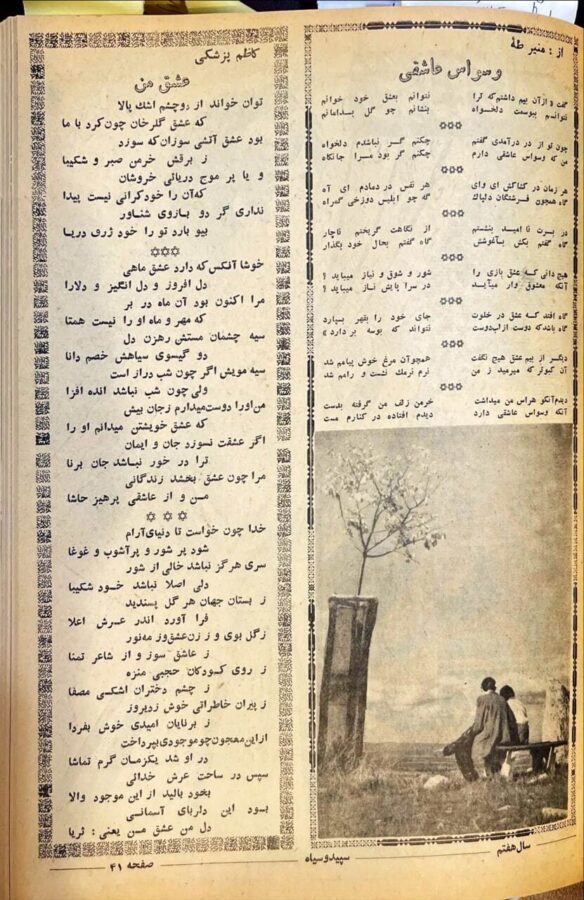 از : منیر طهٔ
وسواس عاشقی
گفت و از آن بیم داشتم که ترا نتوانم بعشق خود خوانم
نتوانم پیوست دلخواه بنشانم چو گل بدامانم
چون تو از در درآمدی گفتم چکنم گر نباشدم دلخواه
من که وسواس عاشقی دارم چکنم گر بود مرا جانکاه
هر زمان در کشاکش ای وای هر نفس در دمادم ای آه
گاه همچون فرشتگان دلپاک گه چو ابلیس دوزخی گمراه
در برت تا امید بنشستم از نگاهت گریختم ناچار
گاه گفتم بکش بآغوشش گاه گفتم بحال خود بگذار
هیچ دانی کسه عشق بازی را شور و شوق و نیاز میباید ؟
آنکه معشوق وار میآید در سرا پایش ناز میباید ؟
گاه افتد کسه عشق در خلوت جای خود را بقهر بسپارد
گاه باشد که دوست از لب دوست نتواند که بوسه بر دارد »
دیگر از بیم عشق هیچ نگفت همچو آن مرغ خوش پیامم شد
آن کبوتر که میرمید ز من نرم نرمک نشست و رامم شد
دیدم آنکو هراس من میداشت خرمن زلف من گرفته بدست
آنکه وسواس عاشقی دارد دیدم افتاده در کنارم مست
کاظم پزشکی
عشق من
توان خواند از دو چشم اشک پالا
که عشق گلرخان چون کرد با ما
بود عشق آتشی سوزان که سوزد
ز برقش خرمن صبر و شکیبا
و یا پر موج دریائی خروشان
که آن را خود کرانی نیست پیدا
نداری گر دو بازوی شناور
بیو بارد تو را خود ژرف دریا
خوشا آنکس که دارد عشق ماهی
دل افروز و دل انگیز و دلارا
مرا اکنون بود آن ماه در بر
که مهر و ماه او را نیست همتا
سیه چشمان مستش رهزن دل
دو گیسوی سیاهش خصم دانا
سیه مویش اگر چون شب دراز است
ولی چون شب نباشد انده افزا
من او را دوست میدارم ز جان بیش
که عشق خویشتن میدانم او را
اگر عشقت نسوزد جان و ایمان
ترا در خور نباشد جان برنا
مرا چون عشق بخشد زندگانی
من و از عاشقی پرهیز حاشا
خدا چون خواست تا دنیای آرام
شود پر شور و پر آشوب و غوغا
سری هرگز نباشد خالی از شور
دلی اصلا نباشد خود شکیبا
ز بستان جهان هر گل پسندید
فرا آورد اندر عرش اعلا
ز گل بوی و ز زن عشق و ز مه نور
ز عاشق سوز و از شاعر تمنا
ز روی کودکان حجبی منزه
ز چشم دختران اشکی مصفا
ز پیران خاطراتی خوش ز دیروز
ز برنایان امیدی خوش بفردا
از این معجون چو موجودی بپرداخت
در او شد یکزمان گرم تماشا
سپس در ساحت عرش خدائی
بخود بالید از این موجود والا
بود این دلربای آسمانی
دل من عشق من یعنی : ثریا
سال هفتم
سپید و سیاه
صفحه ۴۱